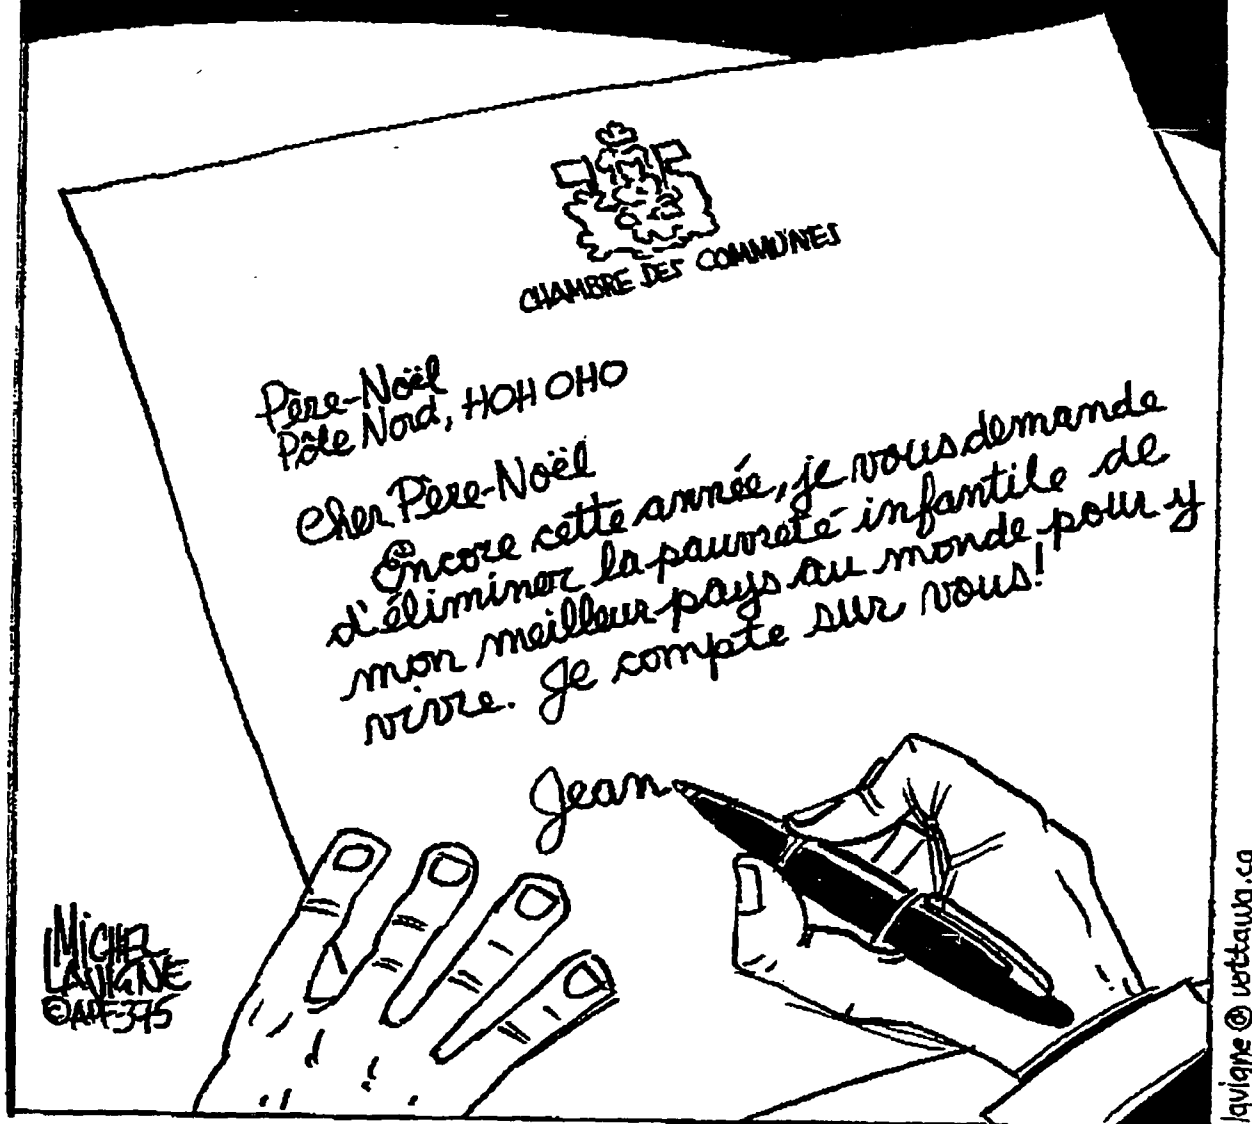 CHAMBRE DES COMMUNES
Père-Noël
Pôle Nord, HOH OHO
Cher Père-Noël
Encore cette année, je vous demande
d'éliminer la pauvreté infantile de
mon meilleur pays au monde pour y
vivre. Je compte sur vous!
Jean
MICHEL
LAVIGNE
©APF-375
lavigne @ uottawa.ca